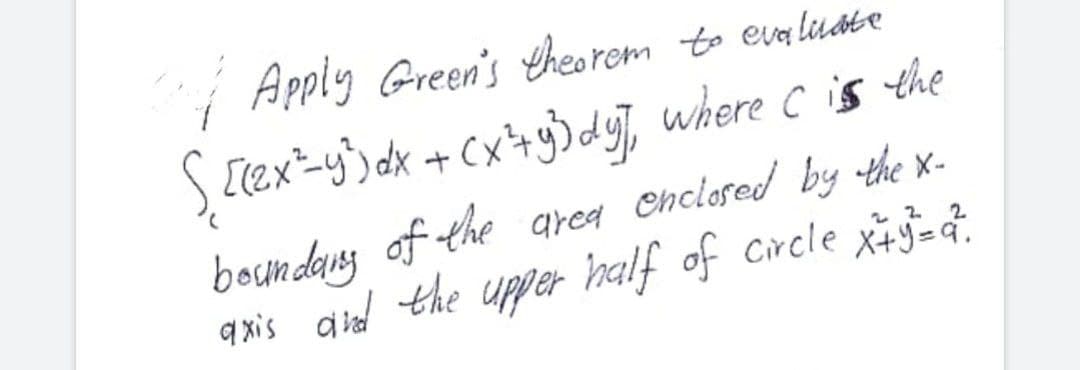 Apply Green's theorem to evaluate
∫c [(2x²-y²)dx + (x²+y²)dy], where C is the
boundary of the area enclosed by the x-
axis and the upper half of circle x²+y²=a².